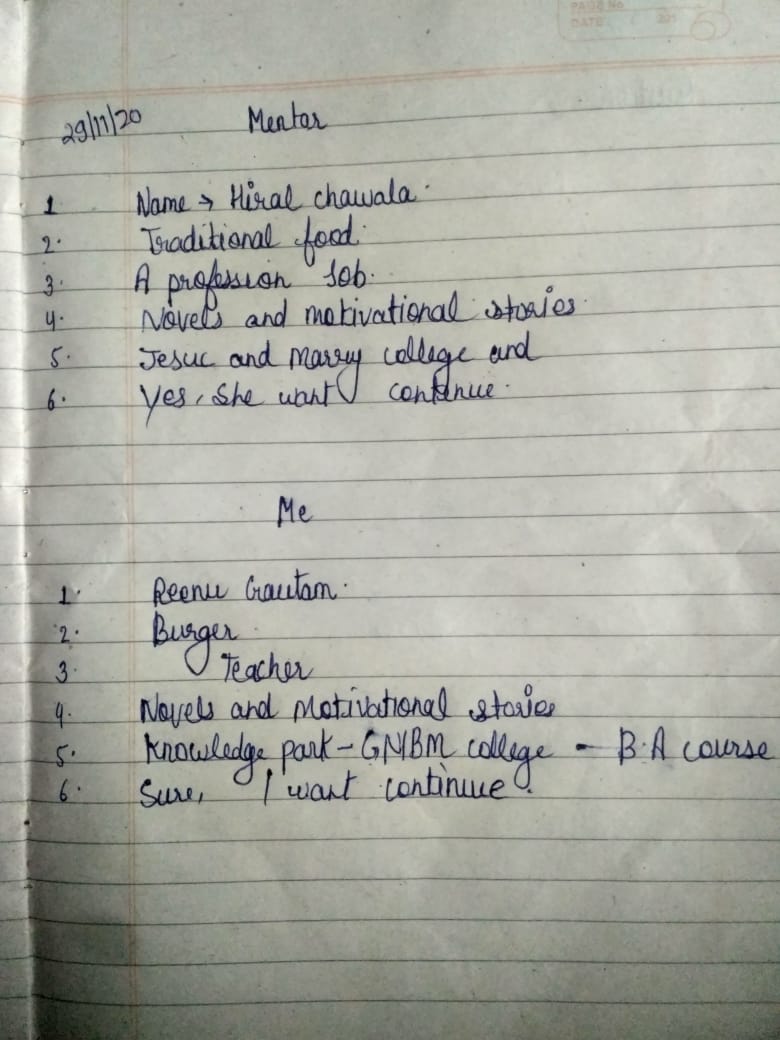 PAGE No
DATE 201
29/11/20 Mentor
1 Name → Hiral chawala.
2. Traditional food.
3. A profession Job.
4. Novels and motivational stories.
5. Jesuc and Marry college and
6. Yes, She want continue.
Me
1. Reenu Gautam.
2. Burger.
3. Teacher
4. Novels and Motivational stories
5. Knowledge park - GNIBM college - B.A course
6. Sure, I want continue.